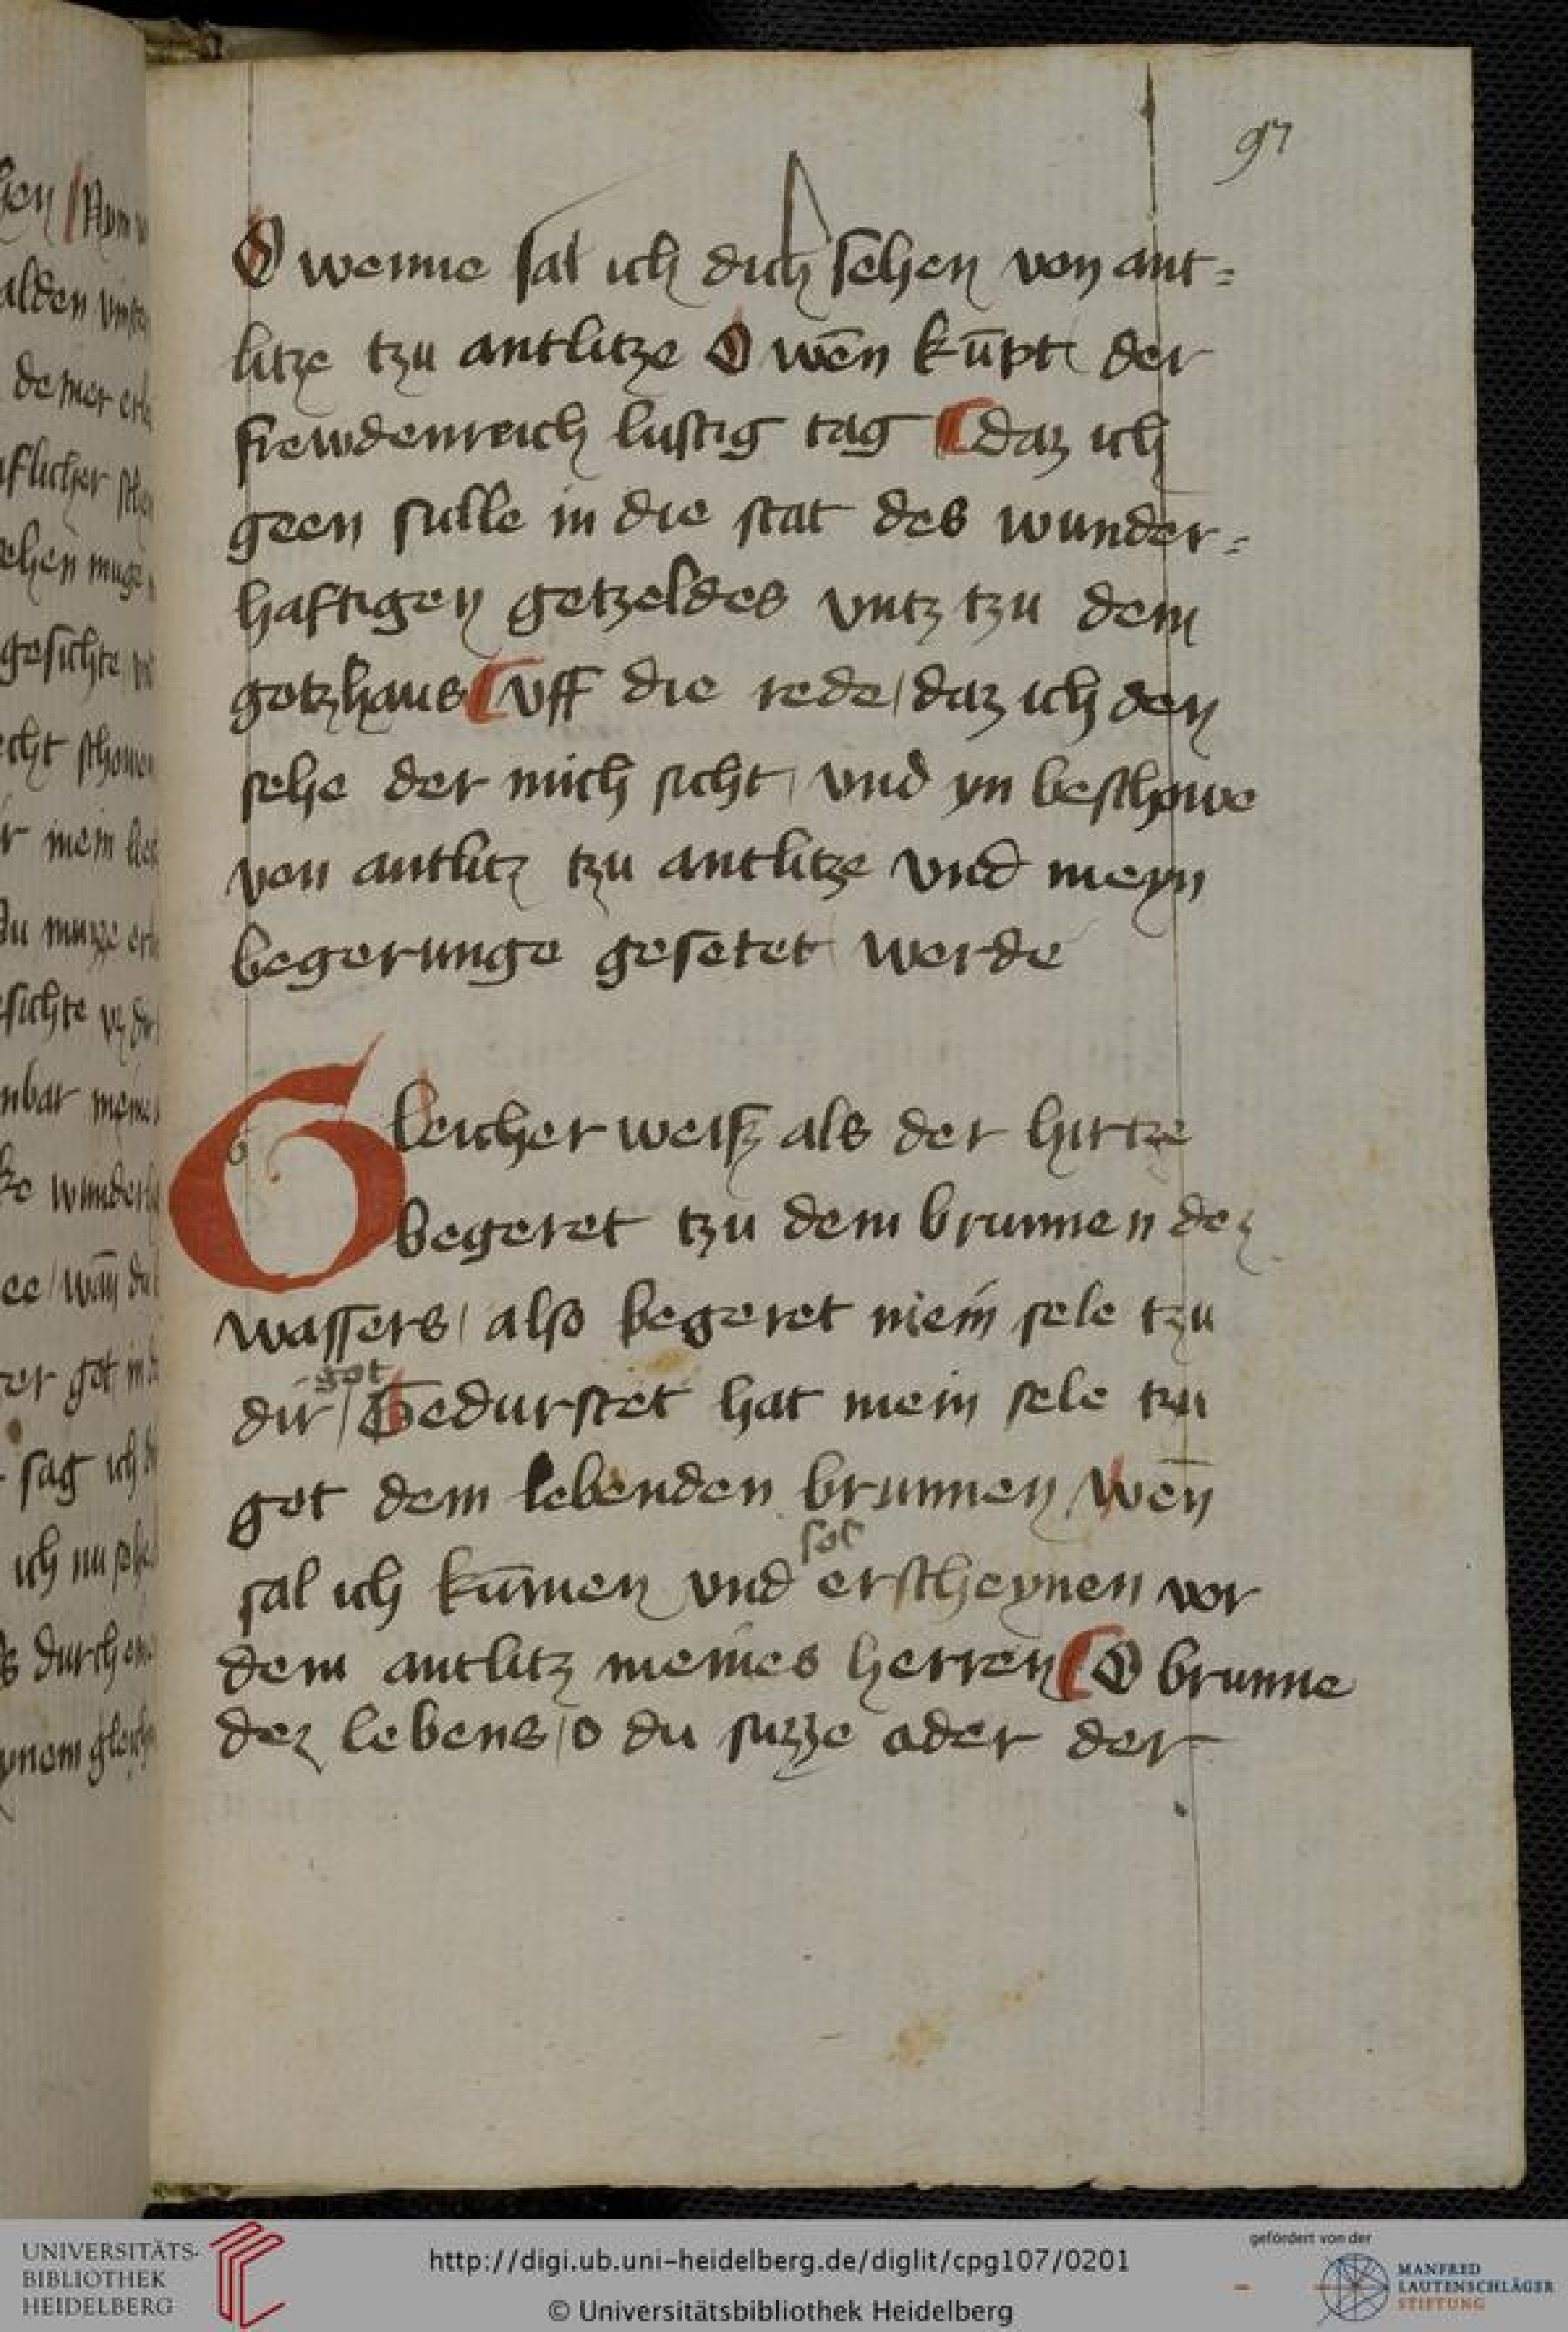 97
O wenne sal ich dich sehen von ant=
litze tzu antlitze O wēn kūpt der
frewdenreich lustig tag ¶ daz ich
geen sulle in die stat des wunder=
haftigen getzeldes vntz tzu dem
gotzhaus ¶ vff die rede / daz ich den
sehe der mich sicht / vnd yn beschowe
von antlitz tzu antlitze vnd meyn
begerunge gesetet werde
Gleicher weisz als der hirtze
begeret tzu dem brunnen dez
wassers / also begeret mein sele tzu
got
dir / Gedurstet hat mein sele tzu
got dem lebenden brunnen / Wēn
sol
sal ich kūmen vnd erscheynen vor
dem antlitz meines herren ¶ O brunne
dez lebens / o du suzze ader der
UNIVERSITÄTS-
BIBLIOTHEK
HEIDELBERG
http://digi.ub.uni-heidelberg.de/diglit/cpg107/0201
© Universitätsbibliothek Heidelberg
gefördert von der
MANFRED
LAUTENSCHLÄGER
STIFTUNG